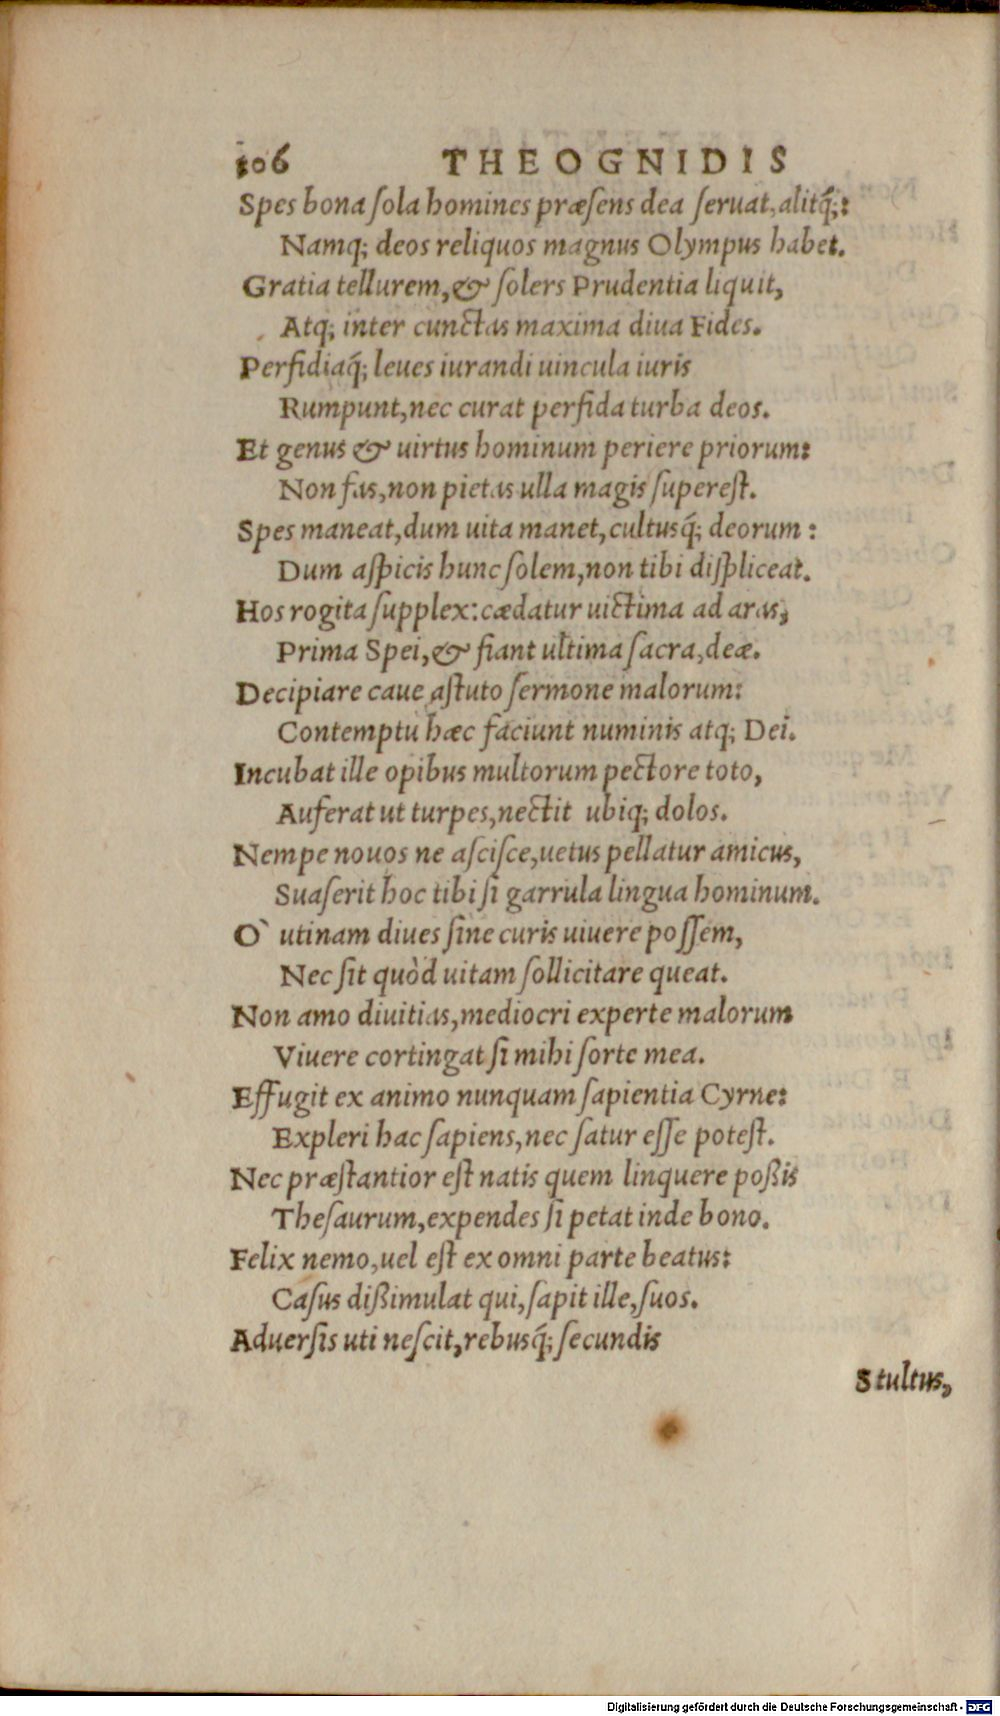 106 THEOGNIDIS
Spes bona ſola homines præſens dea ſeruat, alitq́;:
Namq; deos reliquos magnus Olympus habet.
Gratia tellurem, & ſolers Prudentia liquit,
Atq; inter cunctas maxima diua Fides.
Perfidiaq́; leues iurandi uincula iuris
Rumpunt, nec curat perfida turba deos.
Et genus & uirtus hominum periere priorum:
Non fas, non pietas ulla magis ſupereſt.
Spes maneat, dum uita manet, cultusq́; deorum :
Dum aſpicis hunc ſolem, non tibi diſpliceat.
Hos rogita ſupplex: cædatur uictima ad aras,
Prima Spei, & fiant ultima ſacra, deæ.
Decipiare caue aſtuto ſermone malorum:
Contemptu hæc faciunt numinis atq; Dei.
Incubat ille opibus multorum pectore toto,
Auferat ut turpes, nectit ubiq; dolos.
Nempe nouos ne aſciſce, uetus pellatur amicus,
Suaſerit hoc tibi ſi garrula lingua hominum.
O` utinam diues ſine curis uiuere poſſem,
Nec ſit quòd uitam ſollicitare queat.
Non amo diuitias, mediocri experte malorum
Viuere cortingat ſi mihi ſorte mea.
Effugit ex animo nunquam ſapientia Cyrne:
Expleri hac ſapiens, nec ſatur eſſe poteſt.
Nec præſtantior eſt natis quem linquere poßis
Theſaurum, expendes ſi petat inde bono.
Felix nemo, uel eſt ex omni parte beatus:
Caſus dißimulat qui, ſapit ille, ſuos.
Aduerſis uti neſcit, rebusq́; ſecundis
Stultus,
Digitalisierung gefördert durch die Deutsche Forschungsgemeinschaft - DFG